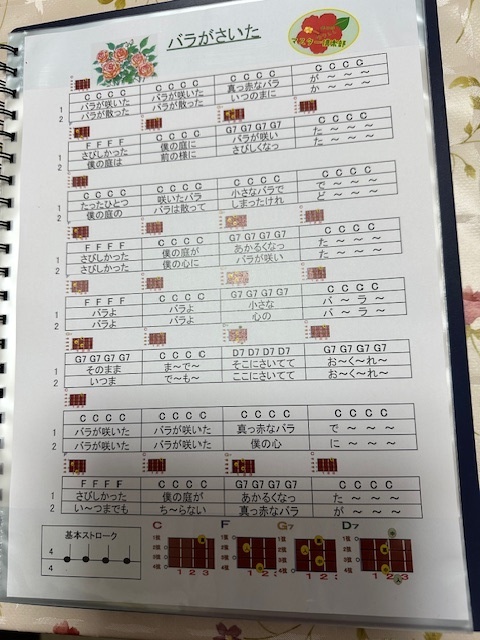 バラがさいた
マスター倶楽部
C C C C C C C C C C C C C C C C
1 バラが咲いた バラが咲いた 真っ赤なバラ が ～ ～ ～
2 バラが散った バラが散った いつのまに か ～ ～ ～
F F F F C C C C G7 G7 G7 G7 C C C C
1 さびしかった 僕の庭に バラが咲い た ～ ～ ～
2 僕の庭は 前の様に さびしくなっ た ～ ～ ～
C C C C C C C C C C C C C C C C
1 たったひとつ 咲いたバラ 小さなバラで で ～ ～ ～
2 僕の庭の バラは散って しまったけれ ど ～ ～ ～
F F F F C C C C G7 G7 G7 G7 C C C C
1 さびしかった 僕の庭が あかるくなっ た ～ ～ ～
2 さびしかった 僕の心に バラが咲い た ～ ～ ～
F F F F C C C C G7 G7 G7 G7 C C C C
1 バラよ バラよ 小さな バ ～ ラ ～
2 バラよ バラよ 心の バ ～ ラ ～
G7 G7 G7 G7 C C C C D7 D7 D7 D7 G7 G7 G7 G7
1 そのまま ま～で～ そこにさいてて お～く～れ～
2 いつま で～も～ ここにさいてて お～く～れ～
C C C C C C C C C C C C C C C C
1 バラが咲いた バラが咲いた 真っ赤なバラ で ～ ～ ～
2 バラが咲いた バラが咲いた 僕の心 に ～ ～ ～
F F F F C C C C G7 G7 G7 G7 C C C C
1 さびしかった 僕の庭が あかるくなっ た ～ ～ ～
2 い～つまでも ち～らない 真っ赤なバラ が ～ ～ ～
基本ストローク C F G7 D7
4
4
1弦 1弦 1弦 1弦
2弦 2弦 2弦 2弦
3弦 3弦 3弦 3弦
4弦 4弦 4弦 4弦
1 2 3 1 2 1 2 1 2 3